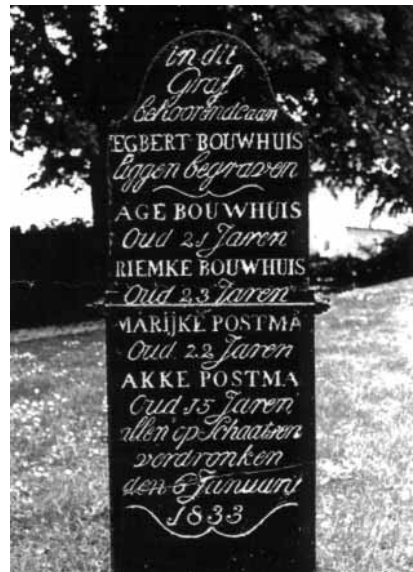 in dit
Graf
behoorende aan
EGBERT BOUWHUIS
liggen begraven
AGE BOUWHUIS
Oud 21 Jaren
RIEMKE BOUWHUIS
Oud 23 Jaren
MARIJKE POSTMA
Oud 22 Jaren
AKKE POSTMA
Oud 15 Jaren
allen op Schaatsen
verdronken
den 6 Januari
1833